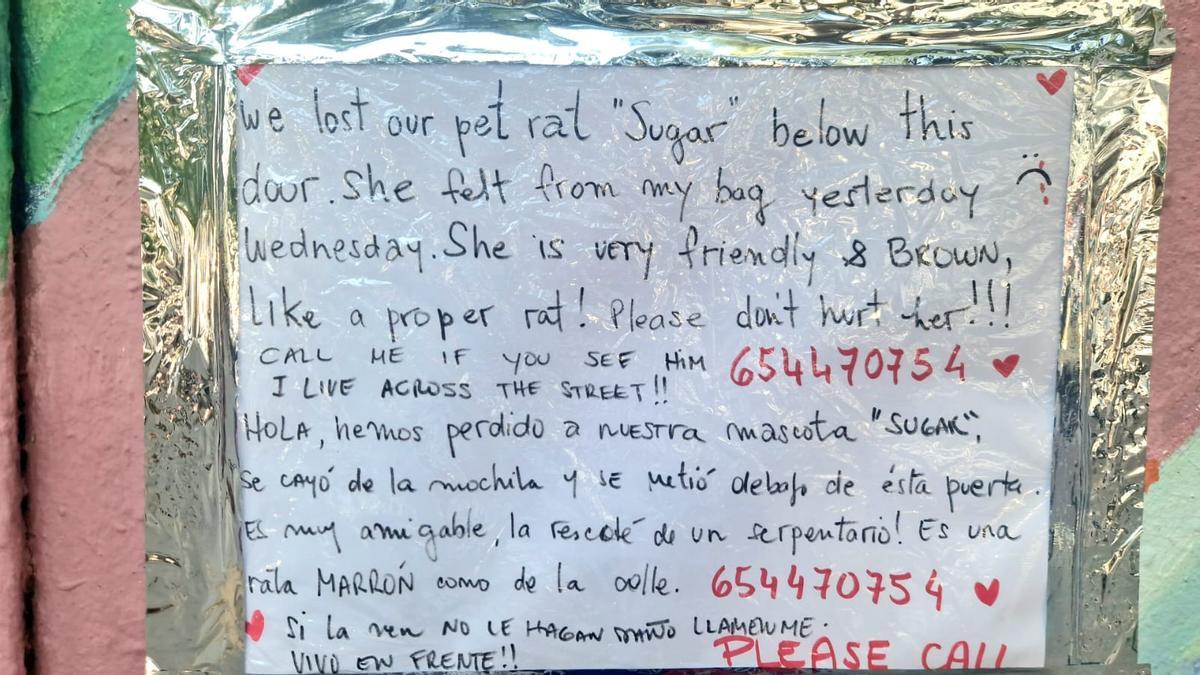 we lost our pet rat "Sugar" below this
door. She felt from my bag yesterday
Wednesday. She is very friendly & BROWN,
Like a proper rat! Please don't hurt her!!!
CALL ME IF YOU SEE HIM 654470754
I LIVE ACROSS THE STREET!!
HOLA, hemos perdido a NUESTRA mascota "SUGAR",
Se CAYÓ de la mochila y SE metió debajo de ésta puerta.
ES muy amigable, la rescaté de un serpentario! Es una
rata MARRÓN como de la calle. 654470754
Si la ven NO LE HAGAN DAÑO LLAMENME.
VIVO EN FRENTE!! PLEASE CALL